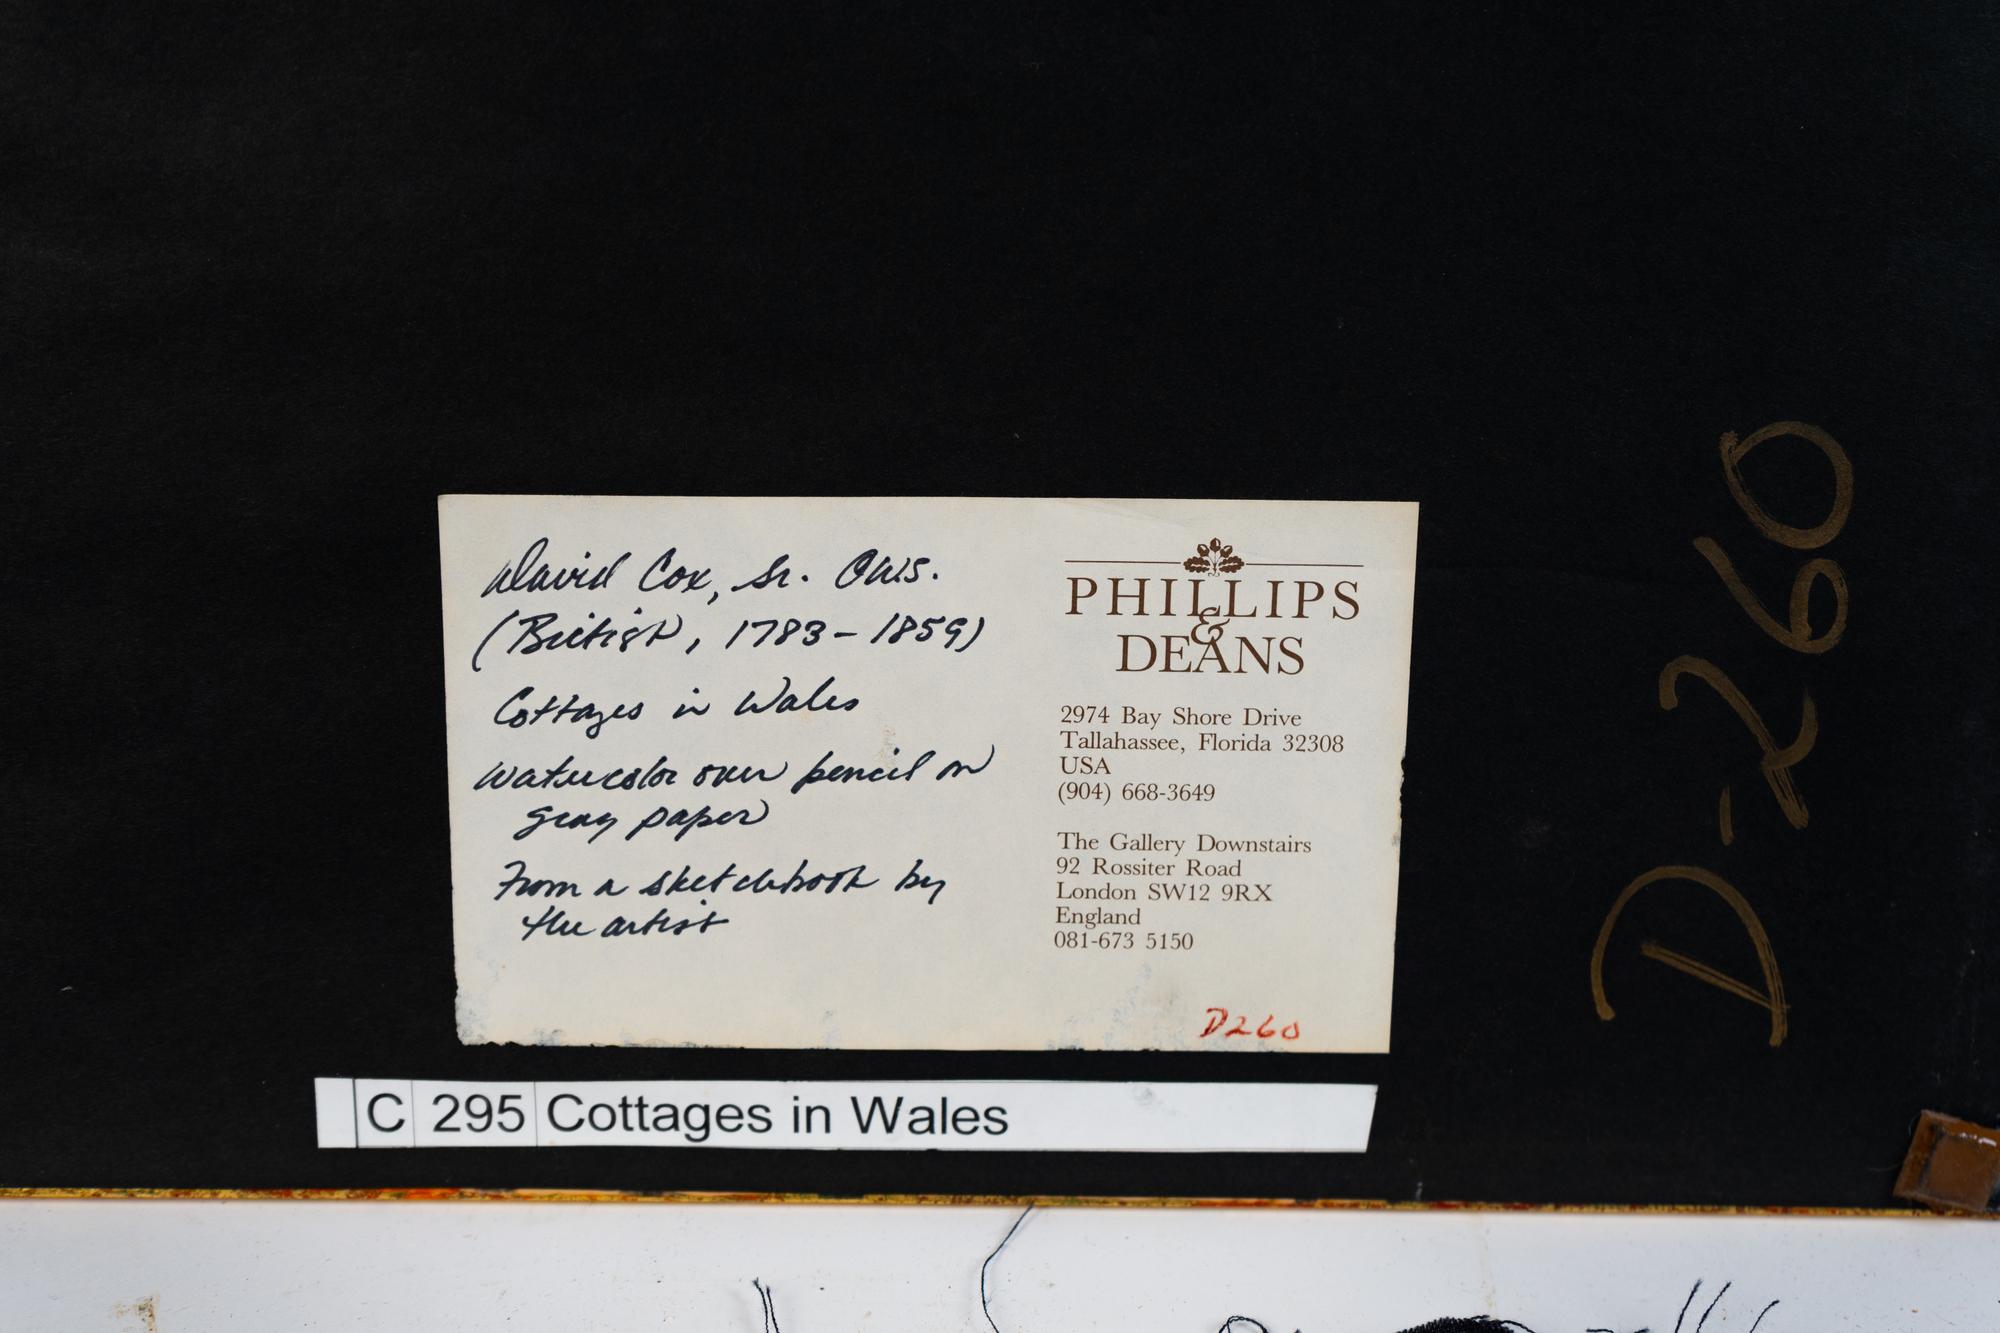 David Cox, Sr. OWS.
(British, 1783-1859)
Cottages in Wales
Watercolor over pencil on
gray paper
From a sketchbook by
the artist
PHILLIPS
&
DEANS
2974 Bay Shore Drive
Tallahassee, Florida 32308
USA
(904) 668-3649
The Gallery Downstairs
92 Rossiter Road
London SW12 9RX
England
081-673 5150
D260
C 295 Cottages in Wales
D-260